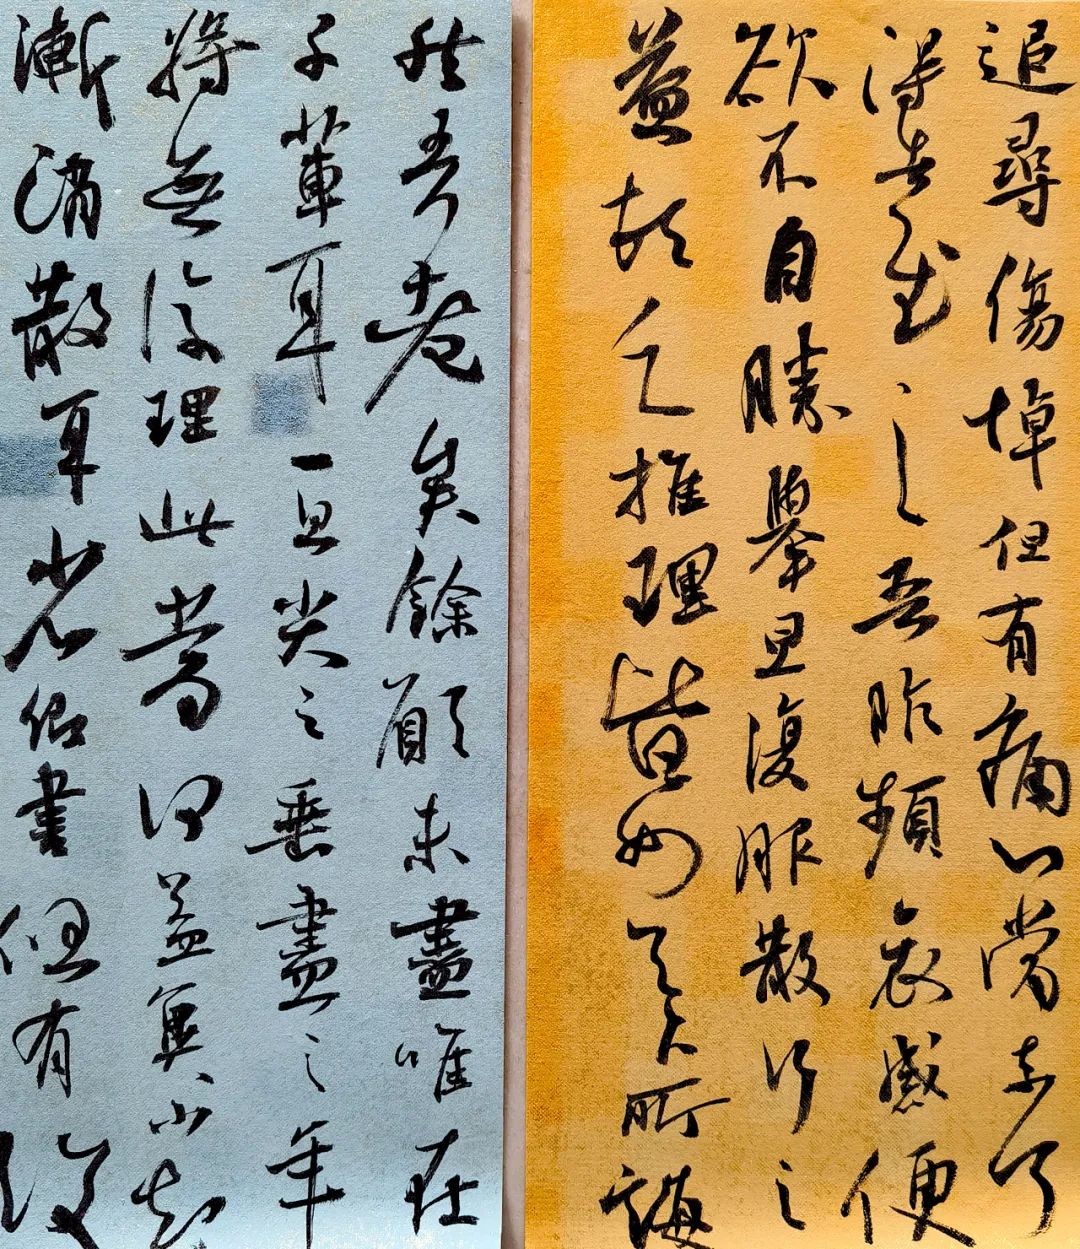 追尋傷悼但有痛心當奈何
得告慰之吾昨頻哀感便
欲不自勝舉旦復服散行之
益頓乏推理皆如足下所誨
然吾老矣餘願未盡唯在
子輩耳一旦哭之垂盡之年
將無復理此當何益冀小却
漸消散耳省卿書但有